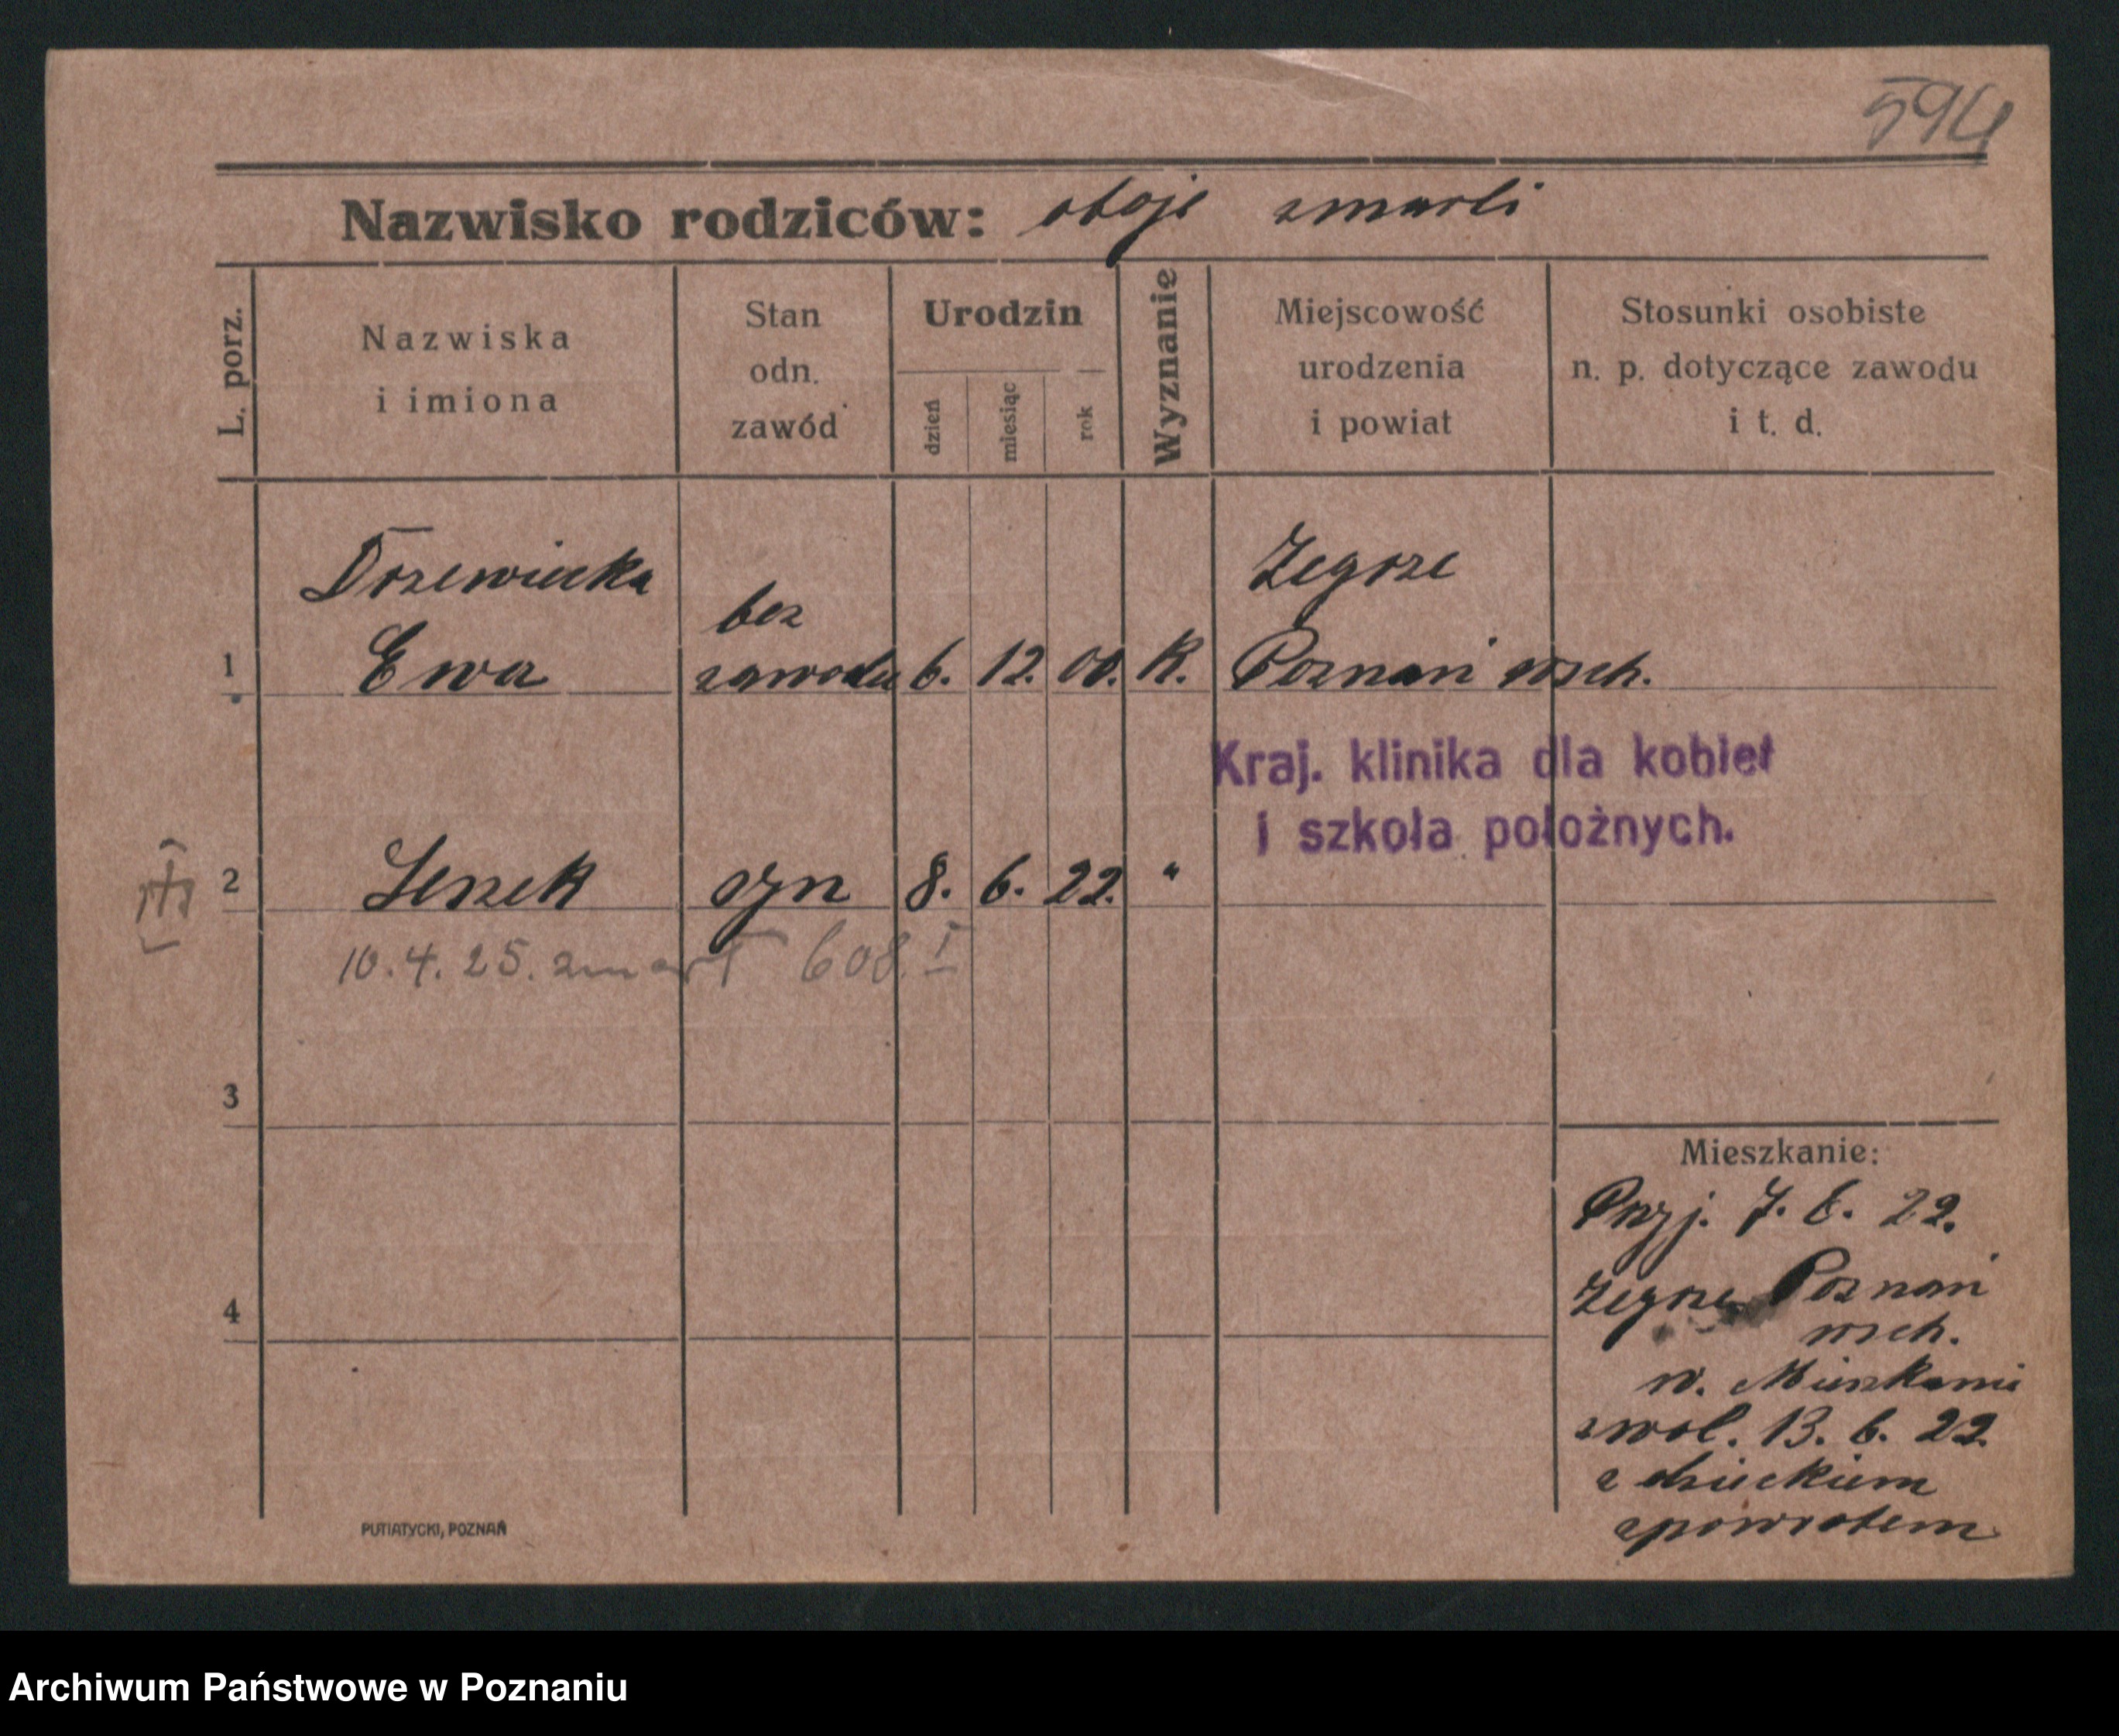 594
Nazwisko rodziców: oboje zmarli
L. porz.
Nazwiska
i imiona
Stan
odn.
zawód
Urodzin
dzień
miesiąc
rok
Wyznanie
Miejscowość
urodzenia
i powiat
Stosunki osobiste
n. p. dotyczące zawodu
i t. d.
Drzewiecka
Zegrze
bez
1 Ewa zawodu 6. 12. 00. K. Poznań wsch.
Kraj. klinika dla kobiet
i szkoła położnych.
2 Leszek syn 8. 6. 22. "
10.4.25. zmarł 608. I
3
Mieszkanie:
Przyj. 7. 6. 22.
Zegrze Poznań
wsch.
4
w. Mieszkania
zwol. 13. 6. 22.
z dzieckiem
zpowrotem
PUTIATYCKI, POZNAŃ
Archiwum Państwowe w Poznaniu